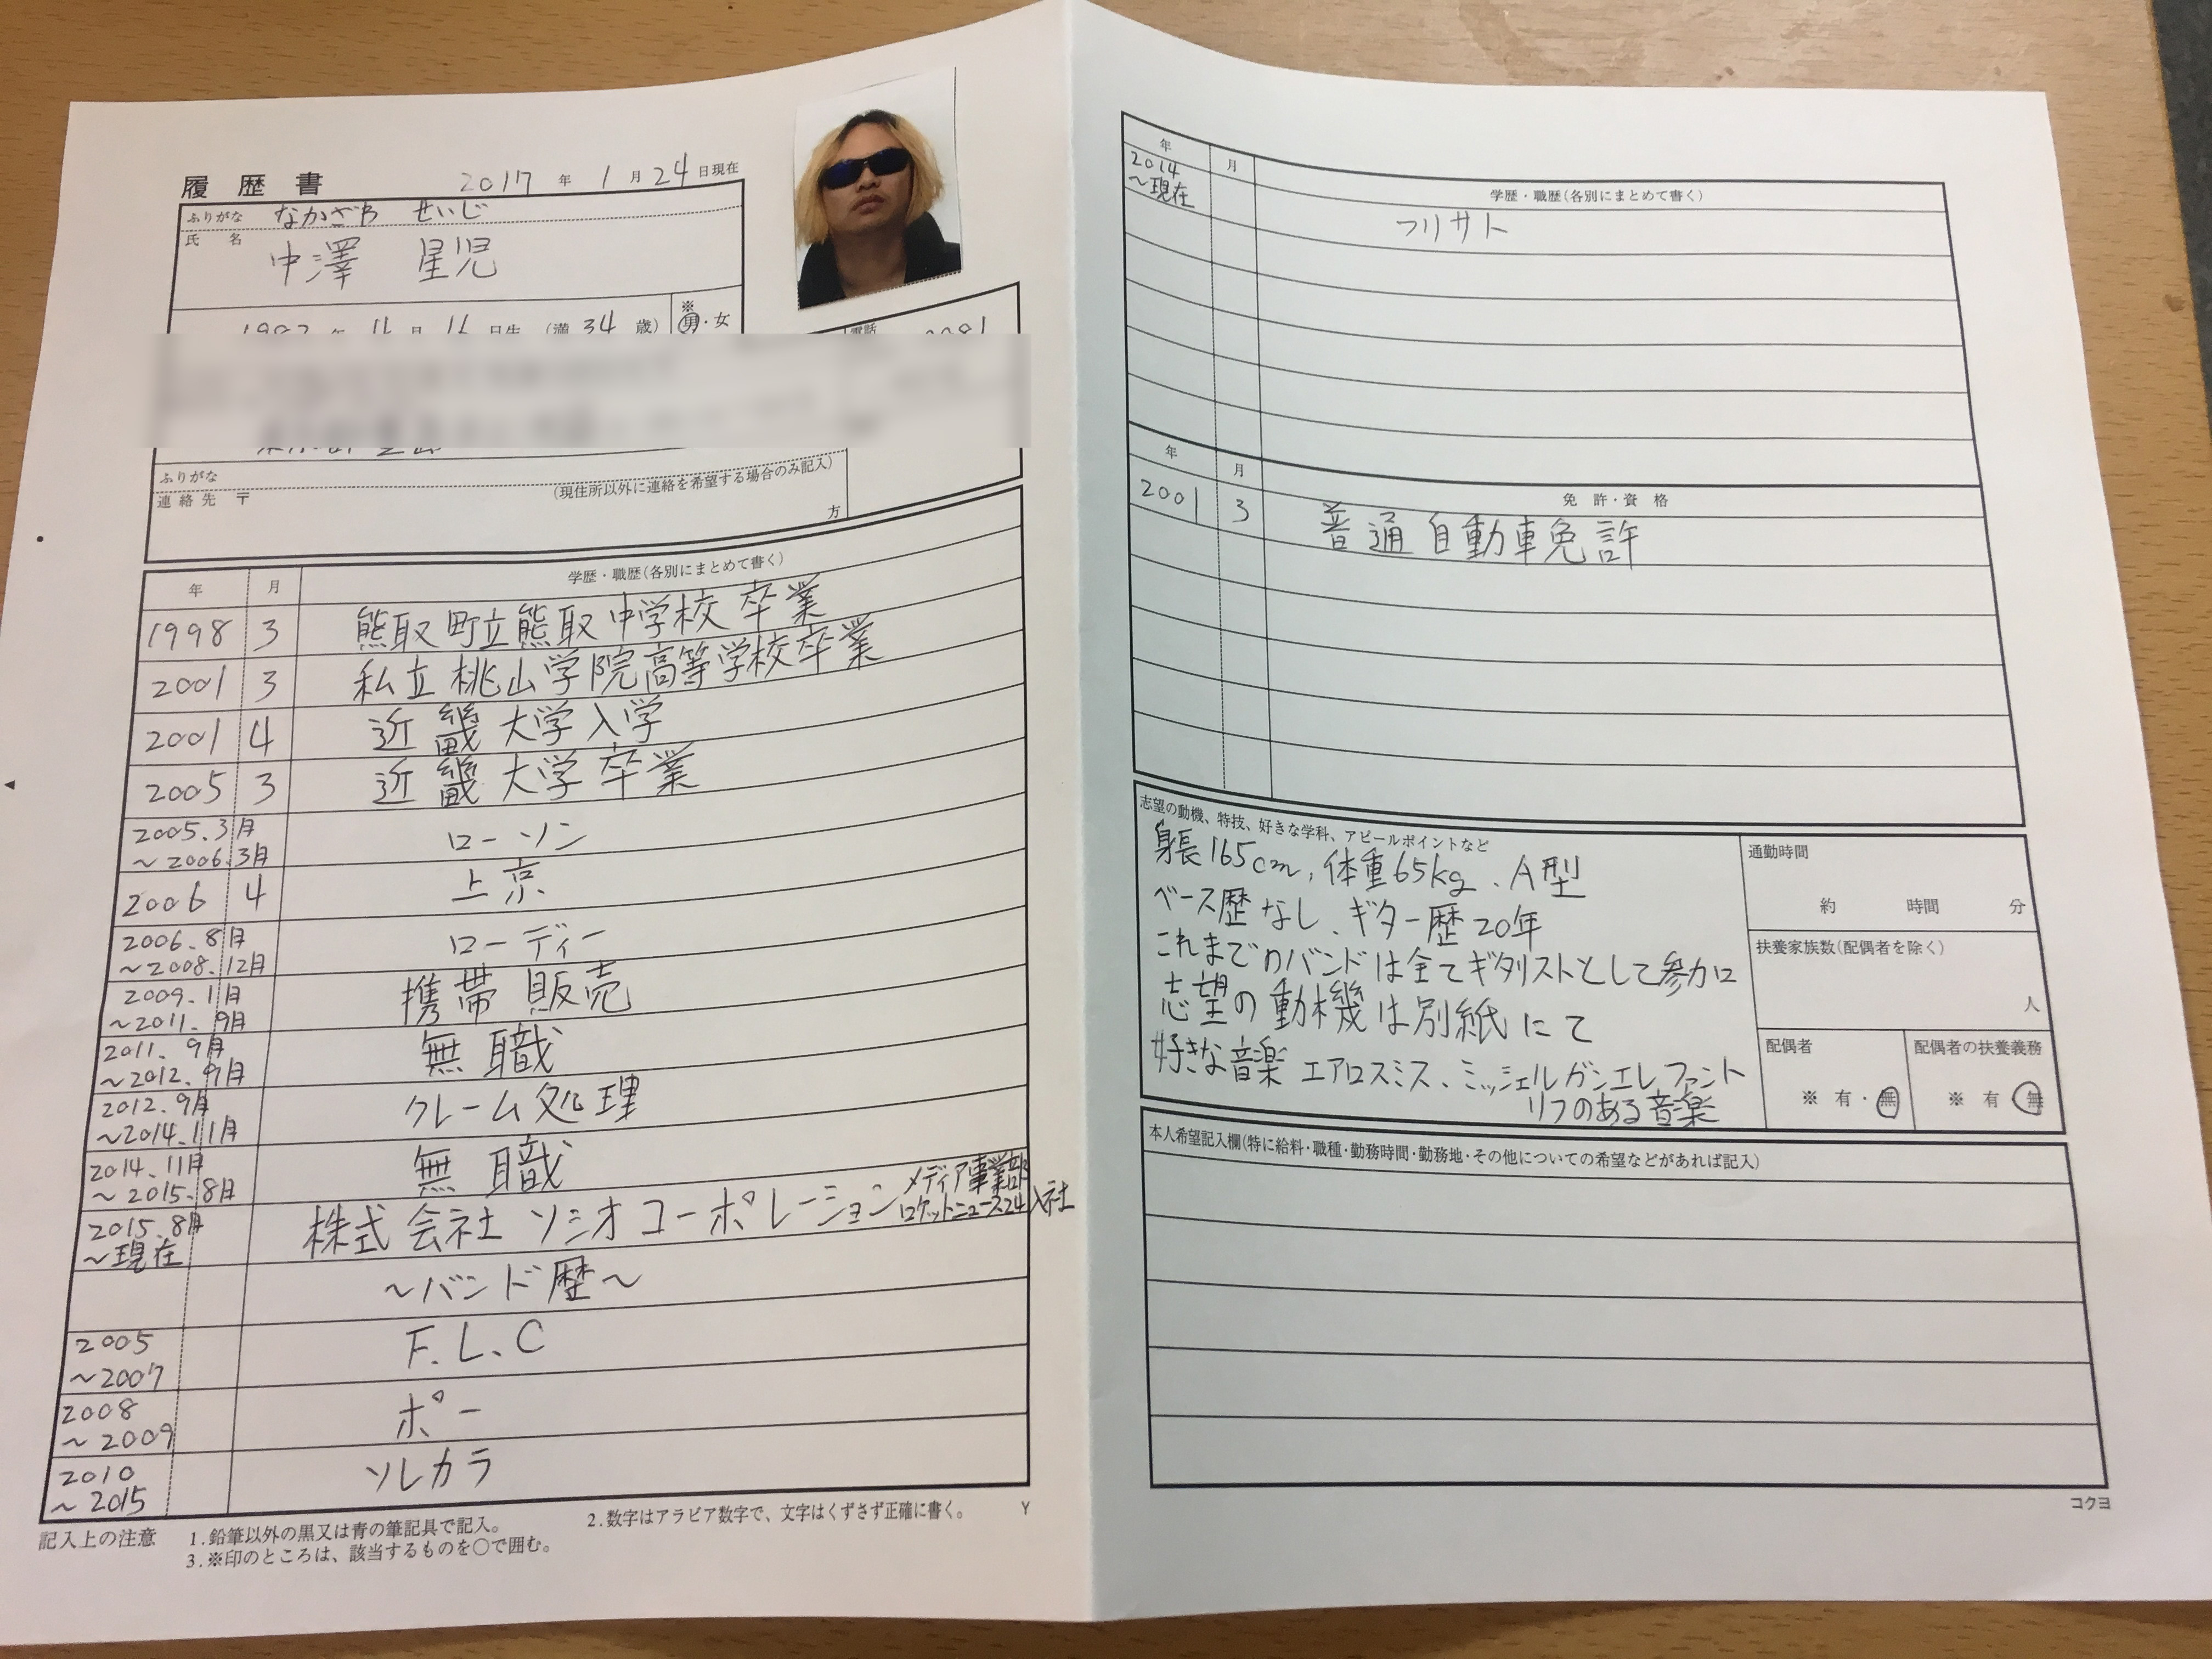 履歴書 2017年 1月24日現在
ふりがな なかざわ せいじ
氏名 中澤 星児
年 11月16日生（満34歳） ※男・女
電話
ふりがな
連絡先 〒 （現住所以外に連絡を希望する場合のみ記入）
方
年 月 学歴・職歴（各別にまとめて書く）
1998 3 熊取町立熊取中学校卒業
2001 3 私立桃山学院高等学校卒業
2001 4 近畿大学入学
2005 3 近畿大学卒業
2005.3月～2006.3月 ローソン
2006 4 上京
2006.8月～2008.12月 ローディー
2009.1月～2011.9月 携帯販売
2011.9月～2012.9月 無職
2012.9月～2014.11月 クレーム処理
2014.11月～2015.8月 無職
2015.8月～現在 株式会社ソシオコーポレーション メディア事業部 ロケットニュース24入社
～バンド歴～
2005～2007 F.L.C
2008～2009 ポー
2010～2015 ソレカラ
記入上の注意 1.鉛筆以外の黒又は青の筆記具で記入。 2.数字はアラビア数字で、文字はくずさず正確に書く。
3.※印のところは、該当するものを○で囲む。
Y
年 月 学歴・職歴（各別にまとめて書く）
2014～現在 フリサト
年 月 免許・資格
2001 3 普通自動車免許
志望の動機、特技、好きな学科、アピールポイントなど
身長165cm,体重65kg、A型
ベース歴なし、ギター歴20年
これまでのバンドは全てギタリストとして参加
志望の動機は別紙にて
好きな音楽 エアロスミス、ミッシェルガンエレファント
リフのある音楽
通勤時間
約 時間 分
扶養家族数（配偶者を除く）
人
配偶者
※ 有・無
配偶者の扶養義務
※ 有 無
本人希望記入欄（特に給料・職種・勤務時間・勤務地・その他についての希望などがあれば記入）
コクヨ